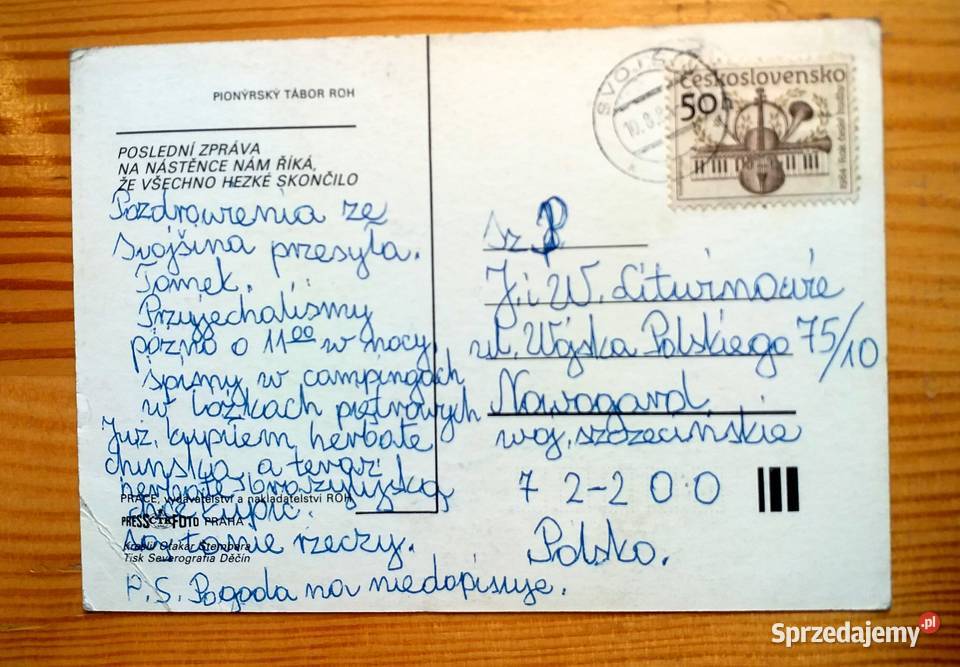 PIONÝRSKÝ TÁBOR ROH
POSLEDNÍ ZPRÁVA
NA NÁSTĚNCE NÁM ŘÍKÁ,
ŽE VŠECHNO HEZKÉ SKONČILO
Pozdrowienia ze
Svojšina przesyła.
Tomek.
Przyjechaliśmy
późno o 11⁰⁰ w nocy,
śpimy w campingach
w łóżkach piętrowych
Już kupiłem herbate
chinską, a teraz
herbate brazylijską,
chce kupić.
są tanie rzeczy.
P.S. Pogoda na niedopisuje.
PRÁCE, vydavatelství a nakladatelství ROH
PRESSFOTO PRAHA
Kreslil Otakar Štembera
Tisk Severografia Děčín
SVOJŠÍN
10.8.8
Československo
50h
1984 Rok české hudby
Sz P
J. i W. Litwinowie
ul. Wojska Polskiego 75/10
Nowogard.
woj. szczecińskie
72-200
Polsko.
Sprzedajemy.pl